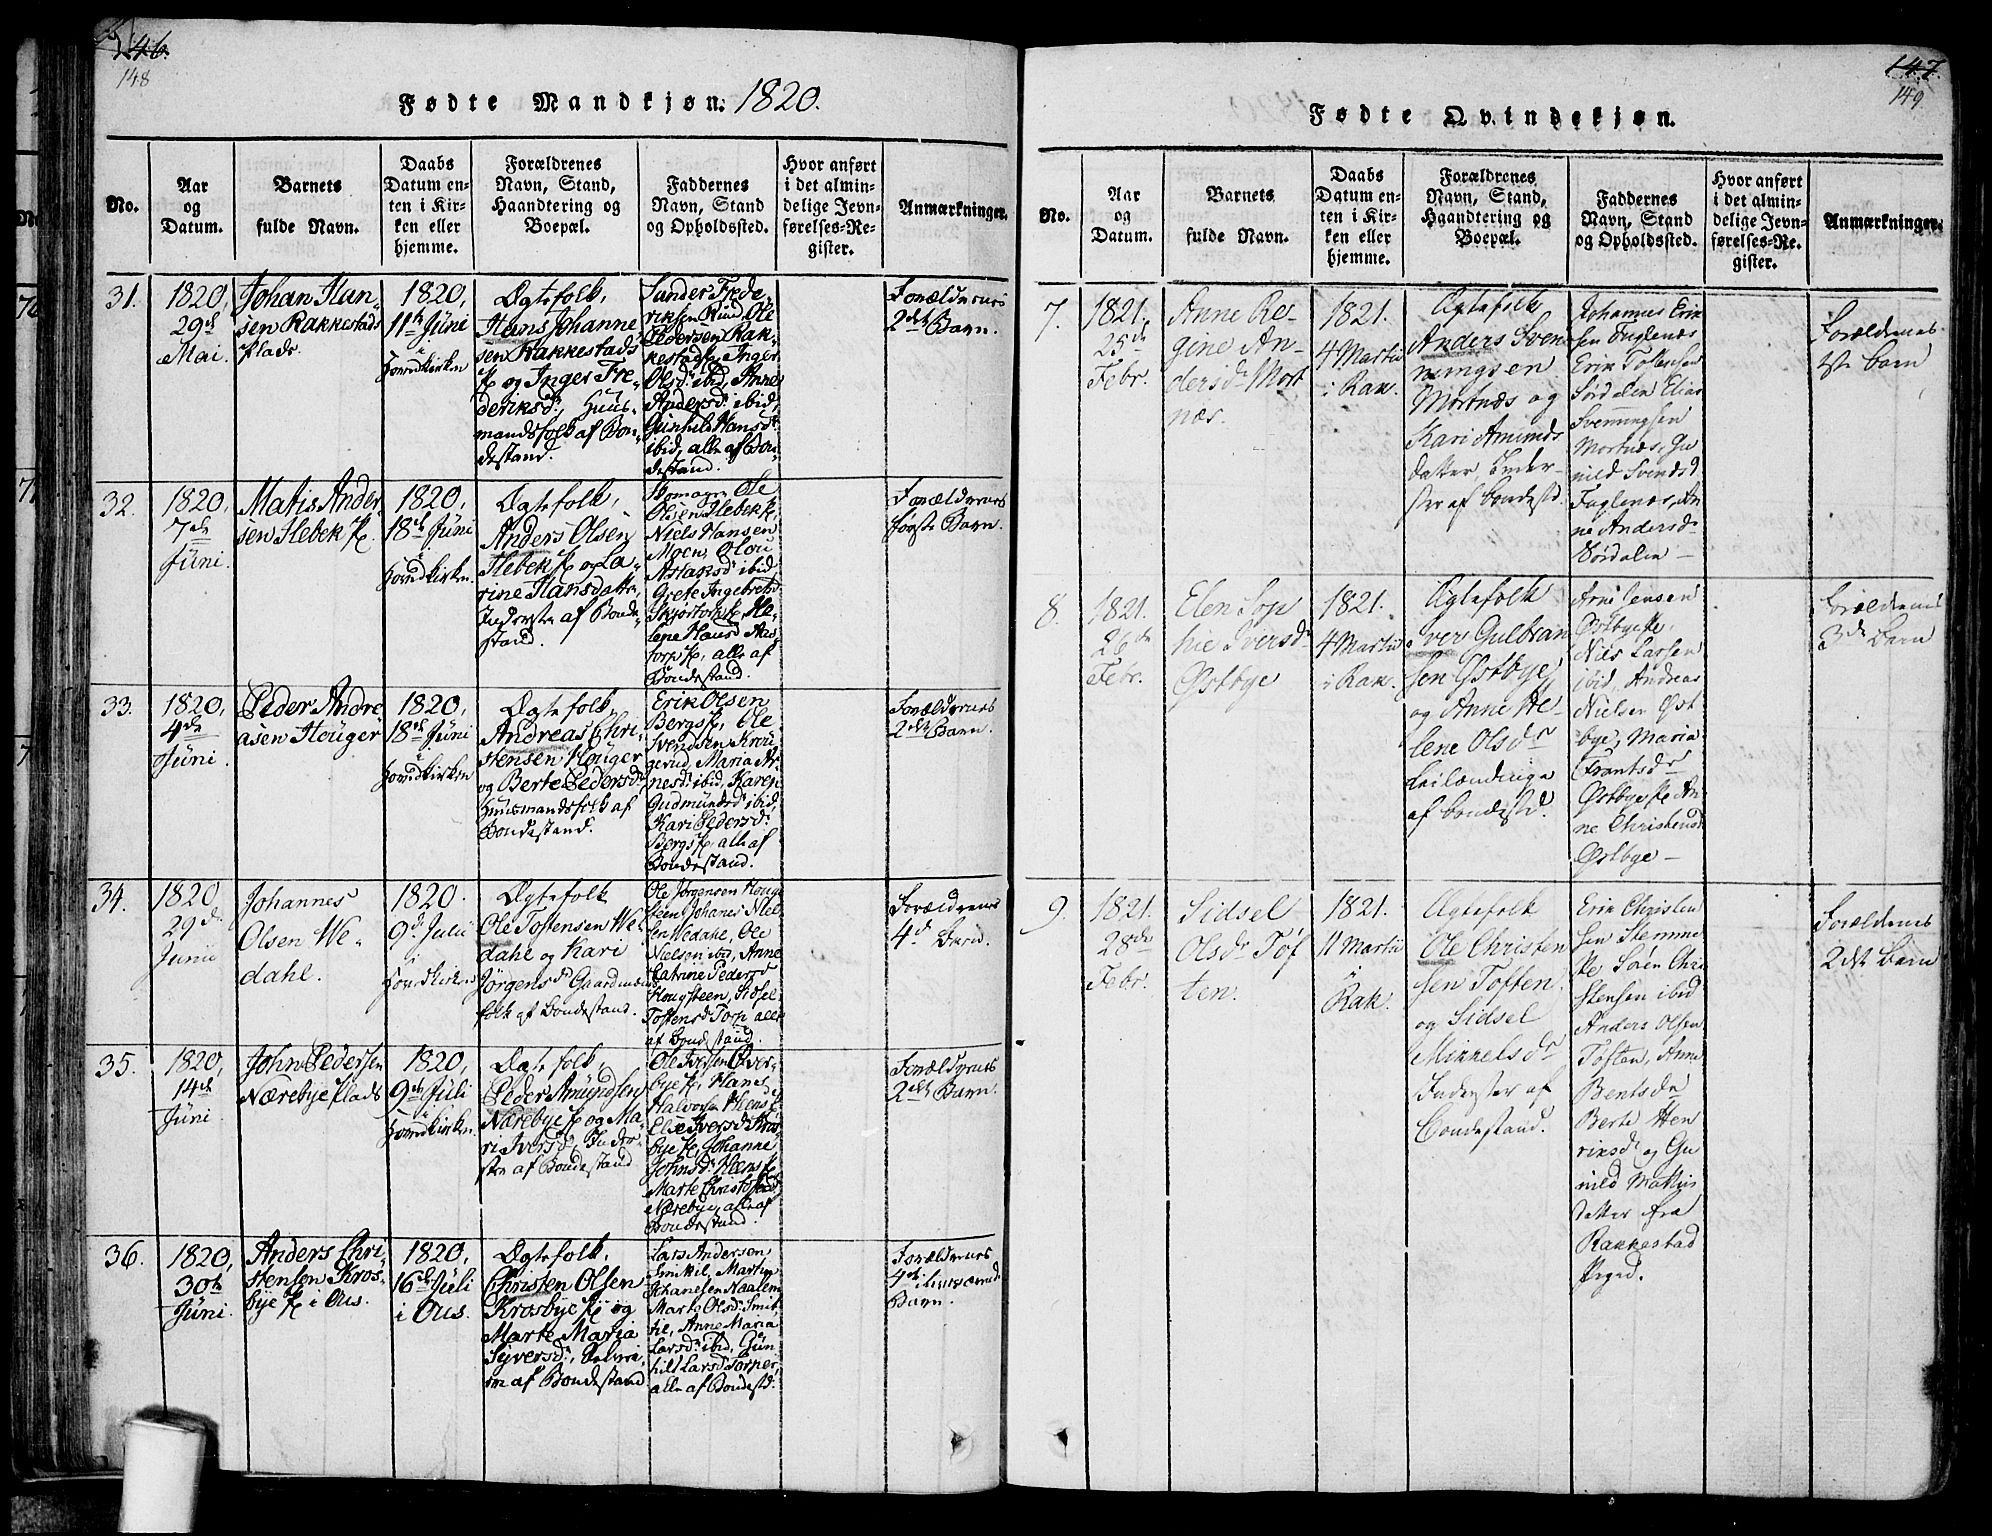 146.
148
Fødte Mandkjøn: 1820.
No.
Aar
og
Datum.
Barnets
fulde Navn.
Daabs
Datum en-
ten i Kir-
ken eller
hjemme.
Forældrenes
Navn, Stand,
Haandtering og
Boepæl.
Faddernes
Navn, Stand
og Opholdssted.
Hvor anført
i det almin-
delige Jevn-
førelses-Re-
gister.
Anmærkninger.
31.
1820,
29de
Mai.
Johan Han-
sen Rakkestads
Plads.
1820,
11te Juni
i
Hovedkirken
Ægtefolk,
Hans Johanne-
sen Rakkestads
Pl og Inger Fre-
deriksd:, Huus-
mandsfolk af Bon-
destand.
Sander Frede-
riksen Rud, Ole
Pedersen Rak-
kestadpl, Inger
Olsd: ibid, Anne
Andersd: ibid,
Gunhild Hansd:
ibid, alle af Bon-
destand.
Forældrenes
2det Barn.
32.
1820,
7de
Juni.
Matis Ander-
sen Slebek Pl.
1820,
18de Juni
i
Hovedkirken.
Ægtefolk,
Anders Olsen
Slebek Pl og La-
rine Hansdatter
Inderste af Bonde-
stand.
Ole
Olsen Slebek Pl,
Niels Hansen
Moen,
Aslaksd: ibid
Grete Ingebretsd
lene Hansd Aas-
torp Pl, alle af
Bondestand.
Forældrenes
første Barn.
33.
1820,
4de
Juni.
Peder Andre-
asen Houger
1820,
18de Juni
i
Hovedkirken
Ægtefolk,
Andreas Chri-
stensen Houger
og Berte Pedersd:
Huusmandsfolk af
Bondestand.
Erik Olsen
Bergs Pl, Ole
Svendsen Krou
gerud, Maria Ar-
nesd: ibid, Karen
Gudmundsd: ibid
Kari Pedersd:
Bergs Pl, alle af
Bondestand.
Forældrenes
2det Barn.
34.
1820
29d:
Junii
Johannes
Olsen We-
dahl.
1820.
9d: Julii
i
Hovedkirken
Ægtefolk
Ole Tostensen We-
dahl og Kari
Jörgensd: Gaardmænds
folk af Bondestand.
Ole Jörgensen Houg
steen, Johanes Niel
sen Wedahl, Ole
Nielsen ibid, Anne
Catrine Pedersd
Hougsteen, Sidsel
Tostensd: Torp alle
af Bondestand.
Forældrenes
4d Barn.
35.
1820,
14de
Juni.
John Pedersen
Nærebye Plads
1820,
9de Juli
i
Hovedkirken.
Ægtefolk,
Peder Amundsen
Nærebye Pl og Ma-
ri Iversd:, Inder-
ste af Bondestand
Ole Iversen Over-
bye Pl, Hans
Halvorsen
Else Iversd: Kros-
bye Pl, Johanne
Johnsd:
Marte Christofersd
Nærebye, alle af
Bondestand.
Forældrenes
2det Barn.
36.
1820,
30te
Juni.
Anders Chri-
stensen Kros-
bye Pl i Ous.
1820,
16de Juli
i Ous.
Ægtefolk,
Christen Olsen
Krosbye Pl og
Marte Maria
Syversd:,
af Bondestand
Lars Andersen
Smitil, Martin
Johanesen Naalem
Marte Olsd: Smi-
til, Anne Maria
Larsd: ibid, Gun-
hilt Larsd Torper,
alle af Bondestd:
Forældrenes
4de
Barn.
147.
149
Fødte Qvindekjøn.
No.
Aar
og
Datum.
Barnets
fulde Navn.
Daabs
Datum en-
ten i Kir-
ken eller
hjemme.
Forældrenes
Navn, Stand,
Haandtering og
Boepæl.
Faddernes
Navn, Stand
og Opholdssted.
Hvor anført
i det almin-
delige Jevn-
førelses-Re-
gister.
Anmærkninger.
7.
1821.
25de
Febr.
Anne Re-
gine An-
dersdr Mort
næs.
1821.
4 Martii
i Rak.
Ægtefolk
Anders Sven
ningsen
Mortnæs og
Kari Amunds
datter Inder-
ster af bondestd.
Johannes Erik
sen Fuglenæs
Erik Tostensen
Sørdalen Elias
Svenningsen
Mortnæs, Gu
nild Svendsd
Fuglenæs, An
ne Andersdr
Sørdalen —
Forældrenes
1ste barn
8.
1821.
26de
Febr.
Elen Sop
hie Iversdr
Østbye
1821.
4 Martii
i Rak.
Ægtefolk
Iver Gulbran
sen Østbye
og Anne He-
lene Olsdr
Leilændinge
af bondestd.
Arne Jensen
Østbye Pl,
Nils Larsen
ibid, Andreas
Nielsen Øst
bye, Maria
Frantsdr
Østbye Pl An
ne Christensd
Østbye —
Forældrenes
3de barn
9.
1821.
28de
Febr.
Sidsel
Olsdr Tof
ten.
1821.
11 Martii
i
Rak.
Ægtefolk
Ole Christen
sen Toften
og Sidsel
Mikkelsdr
Inderster af
Bondestand.
Erik Christen
sen Stemme
Pl, Søren Chri
stensen ibid
Anders Olsen
Toften, Anne
Bentsdr
Berte Hen
riksdr og Gu
nild Mathis
datter fra
Rakkestad
Prgd.
Forældrenes
2det barn